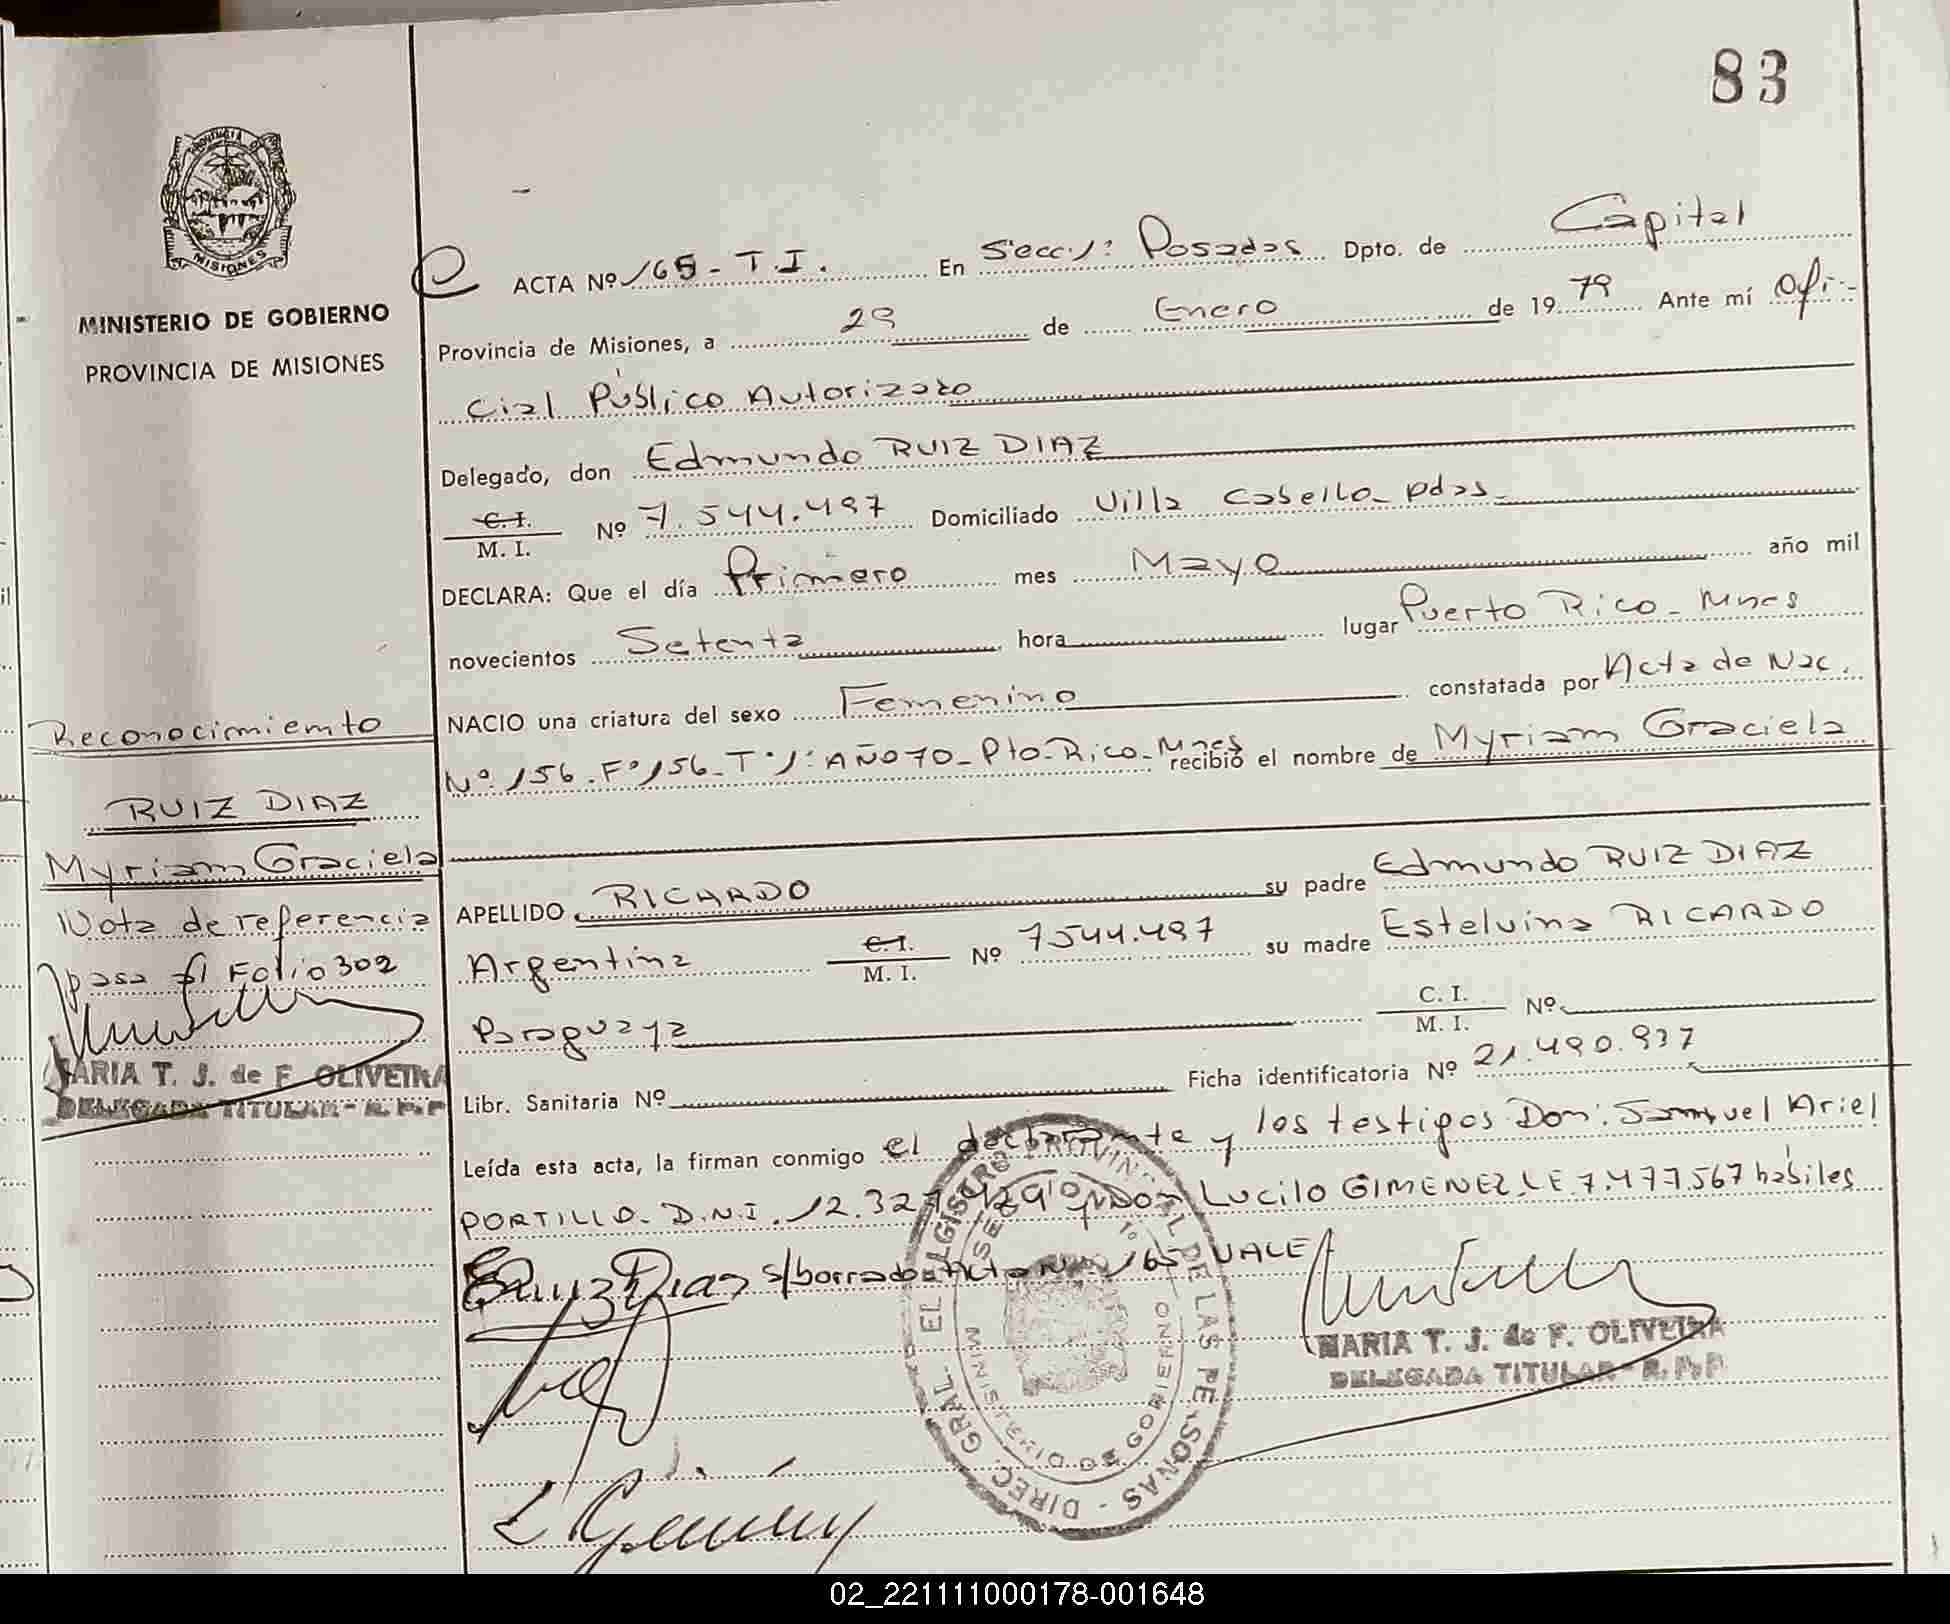 83
PROVINCIA DE
MISIONES
MINISTERIO DE GOBIERNO
PROVINCIA DE MISIONES
ACTA Nº 165 - T.I. En Secc. 1ª: Posadas Dpto. de Capital
Provincia de Misiones, a 29 de Enero de 1979 Ante mí Ofi-
cial Público Autorizado
Delegado, don Edmundo RUIZ DIAZ
C. I. / M. I. Nº 7.544.497 Domiciliado Villa Cabello - Pdas -
DECLARA: Que el día Primero mes Mayo año mil
novecientos Setenta hora lugar Puerto Rico - Mnes
NACIO una criatura del sexo Femenino constatada por Acta de Nac.
Nº 156 - Fº 156 - Tº 1º: AÑO 70 - Pto. Rico - Mnes recibió el nombre de Myriam Graciela
APELLIDO RICARDO su padre Edmundo RUIZ DIAZ
Argentina C. I. / M. I. Nº 7544.497 su madre Estelvina RICARDO
Paraguaya C. I. / M. I. Nº
Libr. Sanitaria Nº Ficha identificatoria Nº 21.490.937
Leída esta acta, la firman conmigo el declarante y los testigos Don: Samuel Ariel
PORTILLO - D.N.I. 12.327.429 y Don Lucilo GIMENEZ LE 7.477.567 hábiles
E Ruiz Diaz s/borrado: Acta Nº 165 VALE
MARIA T. J. de F. OLIVEIRA
DELEGADA TITULAR - R. P. P.
L Gimenez
DIREC. GRAL. EL REGISTRO PROVINCIAL DE LAS PERSONAS
MINISTERIO DE GOBIERNO
Reconocimiento
RUIZ DIAZ
Myriam Graciela
Nota de referencia
pasa al Folio 302
MARIA T. J. de F. OLIVEIRA
DELEGADA TITULAR - R. P. P.
02_221111000178-001648